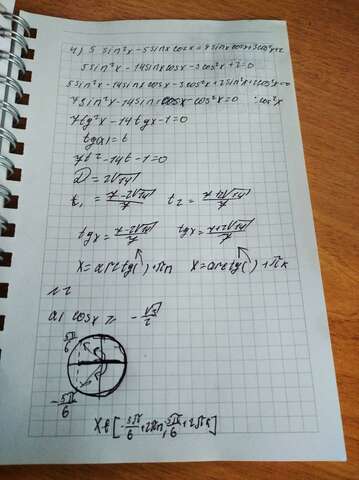 4) 5 sin²x - 5 sinx cosx = 9 sinx cosx + 3cos²x - 2
5 sin²x - 14 sinx cosx - 3 cos²x + 2 = 0
5 sin²x - 14 sinx cosx - 3 cos²x + 2 sin²x + 2 cos²x = 0
7 sin²x - 14 sinx cosx - cos²x = 0 :cos²x
7tg²x - 14tgx - 1 = 0
tg(x) = t
7t² - 14t - 1 = 0
D = 2√14
t₁ = 7-2√14/7 t₂ = 7+2√14/7
tgx = 7-2√14/7 tgx = 7+2√14/7
x = arctg( ) + πn x = arctg( ) + πk
а) cosx ≥ -√3/2
5π/6
-5π/6
x ∈ [-5π/6 + 2πn; 5π/6 + 2πn]